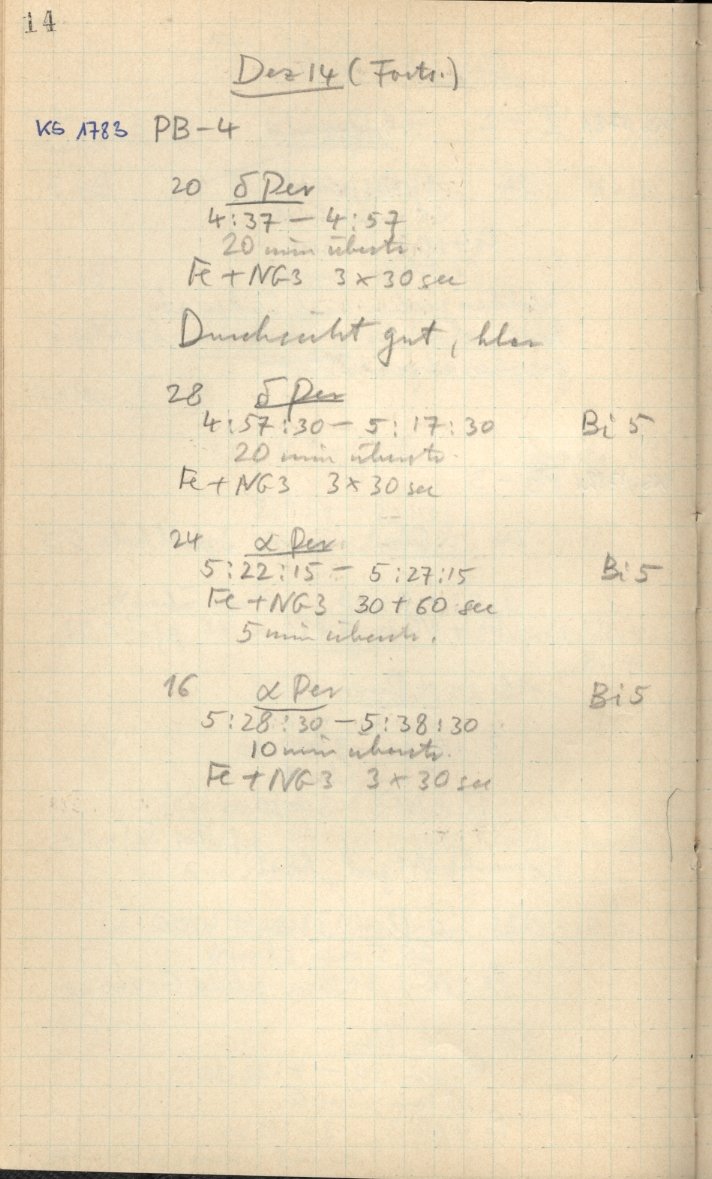 14
Dez 14 (Forts.)
KS 1783 PB-4
20 δ Per
4:37 — 4:57
20 min überstr.
Fe + NG3 3 x 30 sec
Durchsicht gut, klar
28 δ Per
4:57:30 — 5:17:30 Bi 5
20 min überstr.
Fe + NG3 3 x 30 sec
24 α Per
5:22:15 — 5:27:15 Bi 5
Fe + NG3 30 + 60 sec
5 min überstr.
16 α Per Bi 5
5:28:30 — 5:38:30
10 min überstr.
Fe + NG3 3 x 30 sec